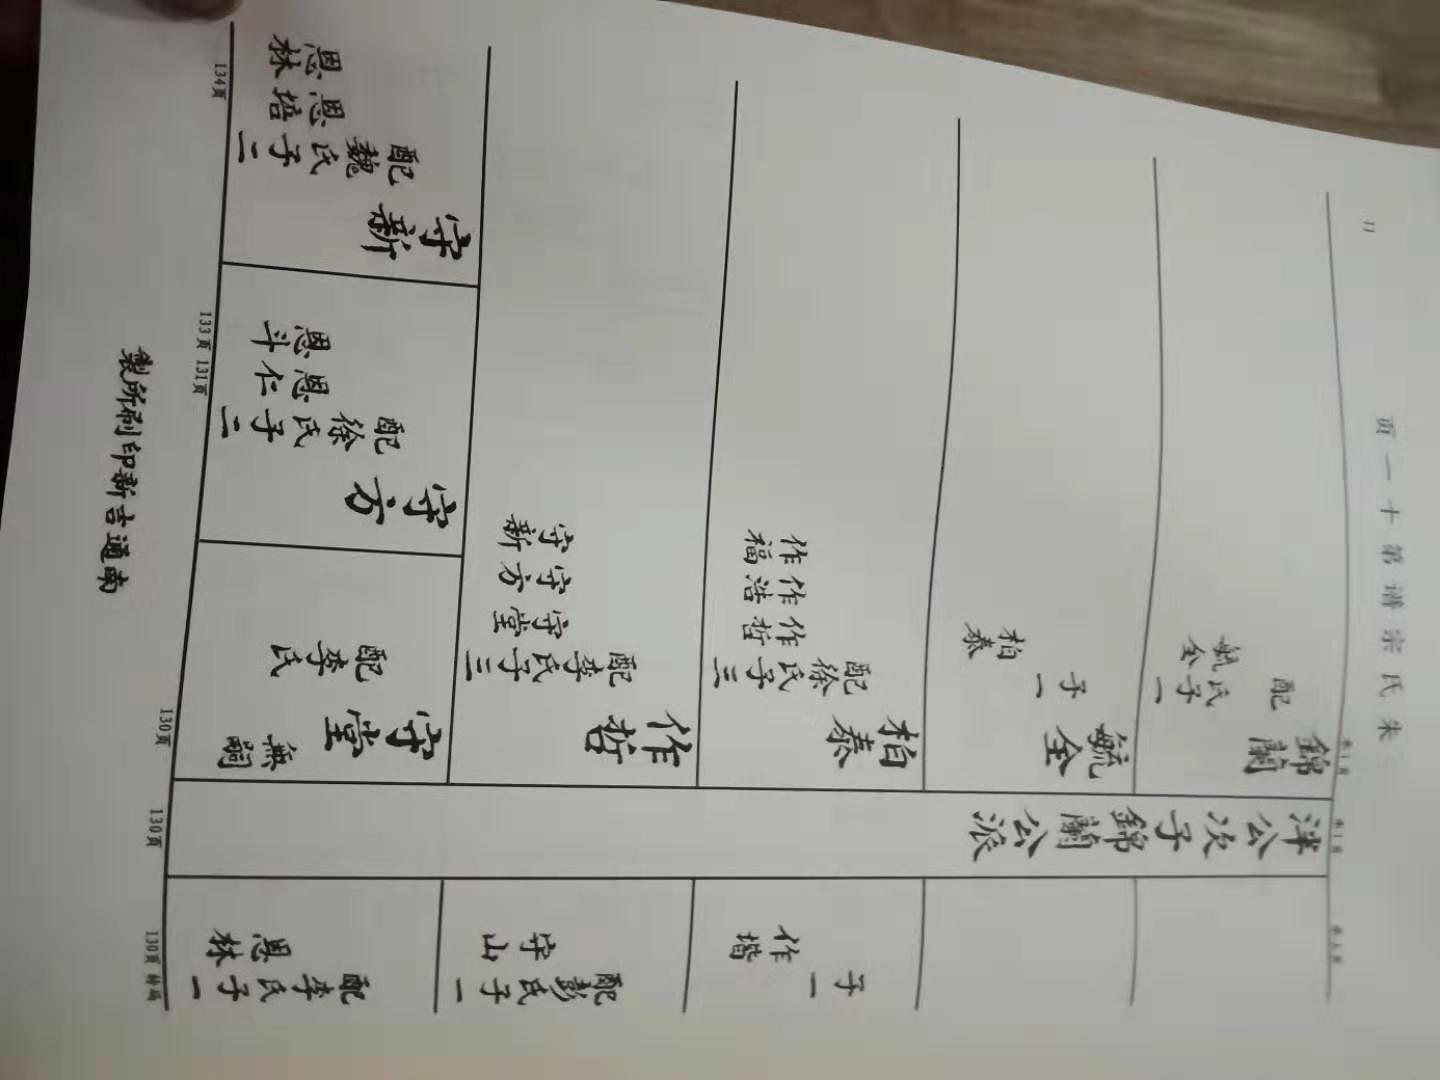 朱氏宗谱第十一页
11
子一
作
配彭氏子一
守山
配李氏子一
恩林
泮公次子錦蘭公派
錦蘭
配 氏子一
毓全
毓全
子一
柏泰
柏泰
配徐氏子三
作哲
作浩
作福
作哲
配李氏子三
守堂
守方
守新
守堂
無嗣
配李氏
守方
配徐氏子二
恩仁
恩斗
守新
配魏氏子二
恩培
恩林
130页
130页
130页
131页
133页
134页
南通吉新印刷所製